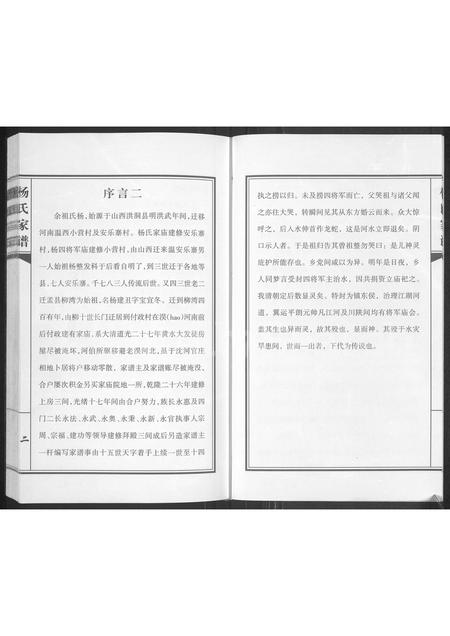 杨氏家谱
序言二
余祖氏杨,始源于山西洪洞县明洪武年间,迁移
河南温西小营村及安乐寨村。杨氏家庙建修安乐寨
村,杨四将军庙建修小营村,由山西迁来温安乐寨男
一人始祖杨整发科于后看自明了,到三世迁于各地等
县,七人安乐寨。千七八三人传流后世。又四三世老二
迁孟县柳湾为始祖,名杨建丑字宝宜冬。迁到柳湾四
百有年,由柳十世长门迁居到付政村在溴(hao)河南前
后付政建有家庙,系大清道光二十七年黄水大发徒房
屋尽被淹坏,河伯所驱移避老溴河北,虽于沈河官庄
相地卜居将户移动零散,家谱主及家谱账尽被淹没,
合户屡次积金另买家庙院地一所,乾隆二十六年建修
上房三间,光绪十七年间由合户努力,族长永惠及四
门二长永法、永武、永奥、永秉、永新、永官执事人宗
周、宗福、建功等领导建修拜殿三间成后另造家谱主
一杆编写家谱事由十五世天字着手上续一世至十四
二
执之捞以归。未及捞四将军而亡,父哭祖与诸父闻
之亦往大哭,转瞬间见其从东方婚云而来。众大惊
呼之,后人水伸首作龙蛇,这是河水立即退矣。阴
口示人者。于是祖归告其曾祖整勿哭曰:是儿神灵
庇护所能存也。乡党间咸以为异。明年是日夜,乡
人同梦言受封四将军主治水,因共捐资立庙祀之。
我清朝定后数显灵矣。特封为镇东侯,治理江潮河
道,翼运平朗元帅凡江河及川陕间均有将军庙会。
盖其生也异而灵,故其殁也,显而神。其殁于水灾
旱患间,世而一出者,下代为传说也。